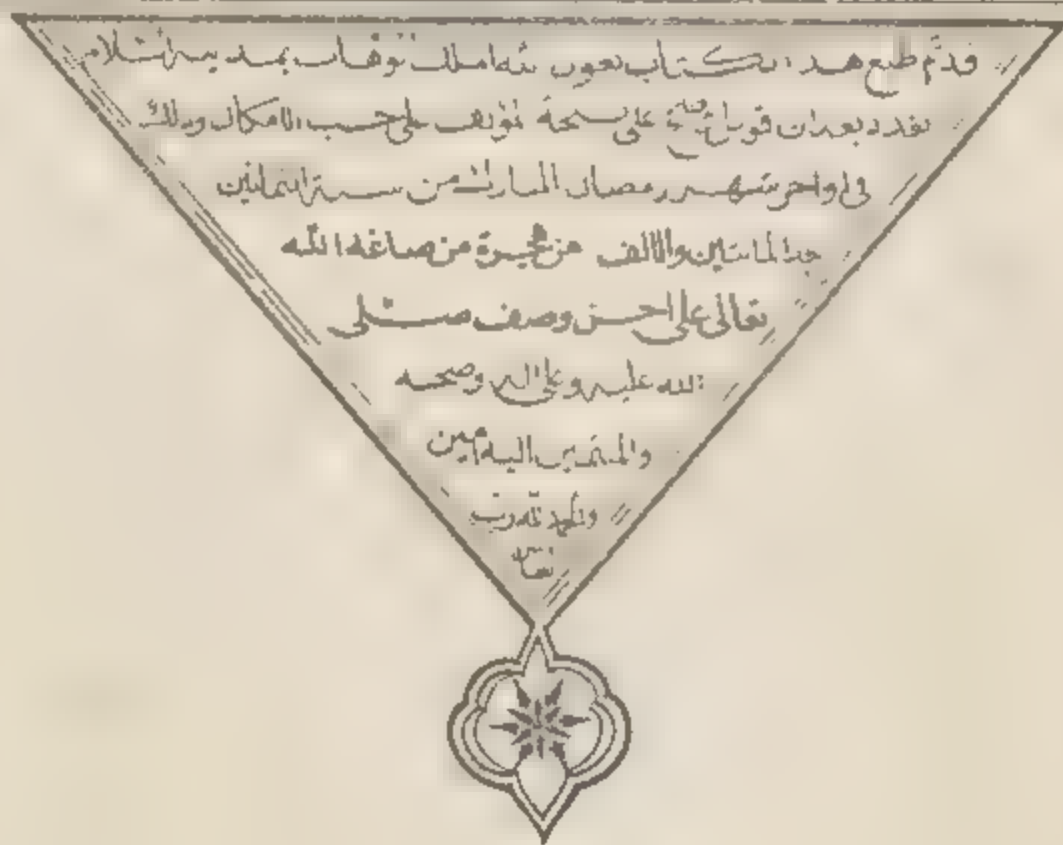 قد تم طبع هذا الكتاب بعون الله الملك الوهاب بمدينة السلام
بغداد بعد ان قوبل وصحح على نسخة المؤلف على حسب الامكان وذلك
فى اواخر شهر رمضان المبارك من سنة الثمانين
بعد المائتين والالف من هجرة من صاغه الله
تعالى على احسن وصف صلى
الله عليه وعلى اله وصحبه
والمنتمين اليه امين
والحمد لله رب